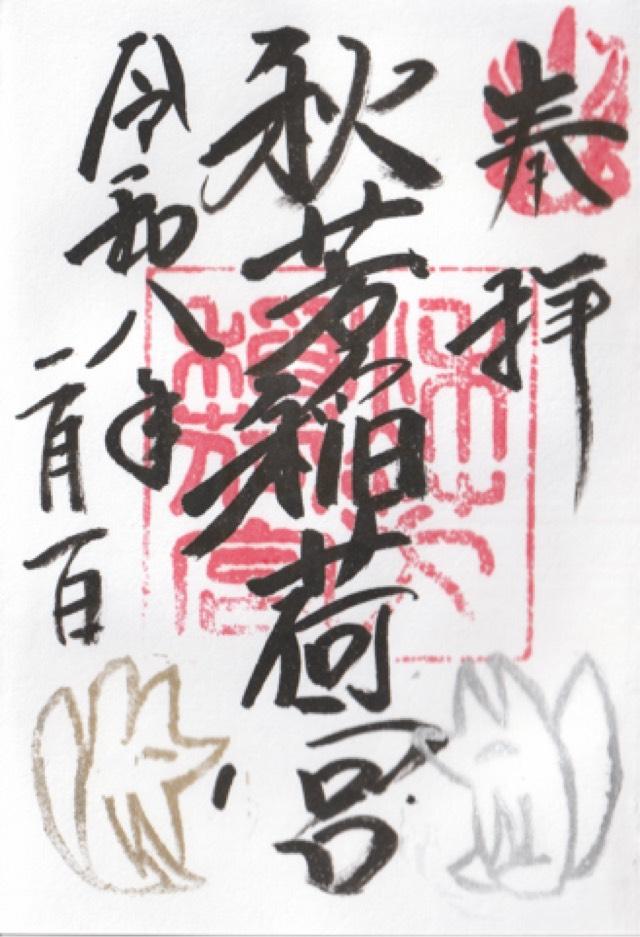 奉拝
秋芳稲荷宮
令和八年
二月一日